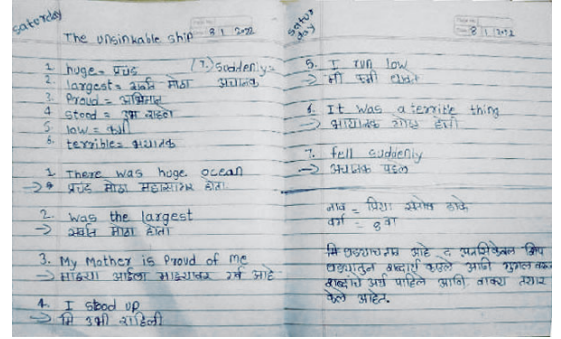 Saturday
The unsinkable ship
8 1 2022
1. huge = प्रचंड
(7.) Suddenly =
2. largest = सर्वात मोठा
अचानक
3. Proud = अभिमान
4 stood = उभ राहीला
5. low = कमी
6. terrible = भयानक
1 There was huge ocean
→ प्रचंड मोठा महासागर होता.
2. was the largest
→ सर्वात मोठा होता
3. My Mother is Proud of me
→ माझ्या आईला माझ्यावर गर्व आहे
4. I stood up
→ मि उभी राहिली
Saturday
8 1 2022
5. I run low
→ मी कमी
6. It was a terrible thing
→ भयानक गोष्ट होती
7. fell suddenly
→ अचानक पडल
नाव = प्रिया
वर्ग = 8 वा
आहे द
शब्दार्थ आणि गुगल वरून
शब्दाचे अर्थ पाहिले आणि वाक्य तयार
केले आहेत.